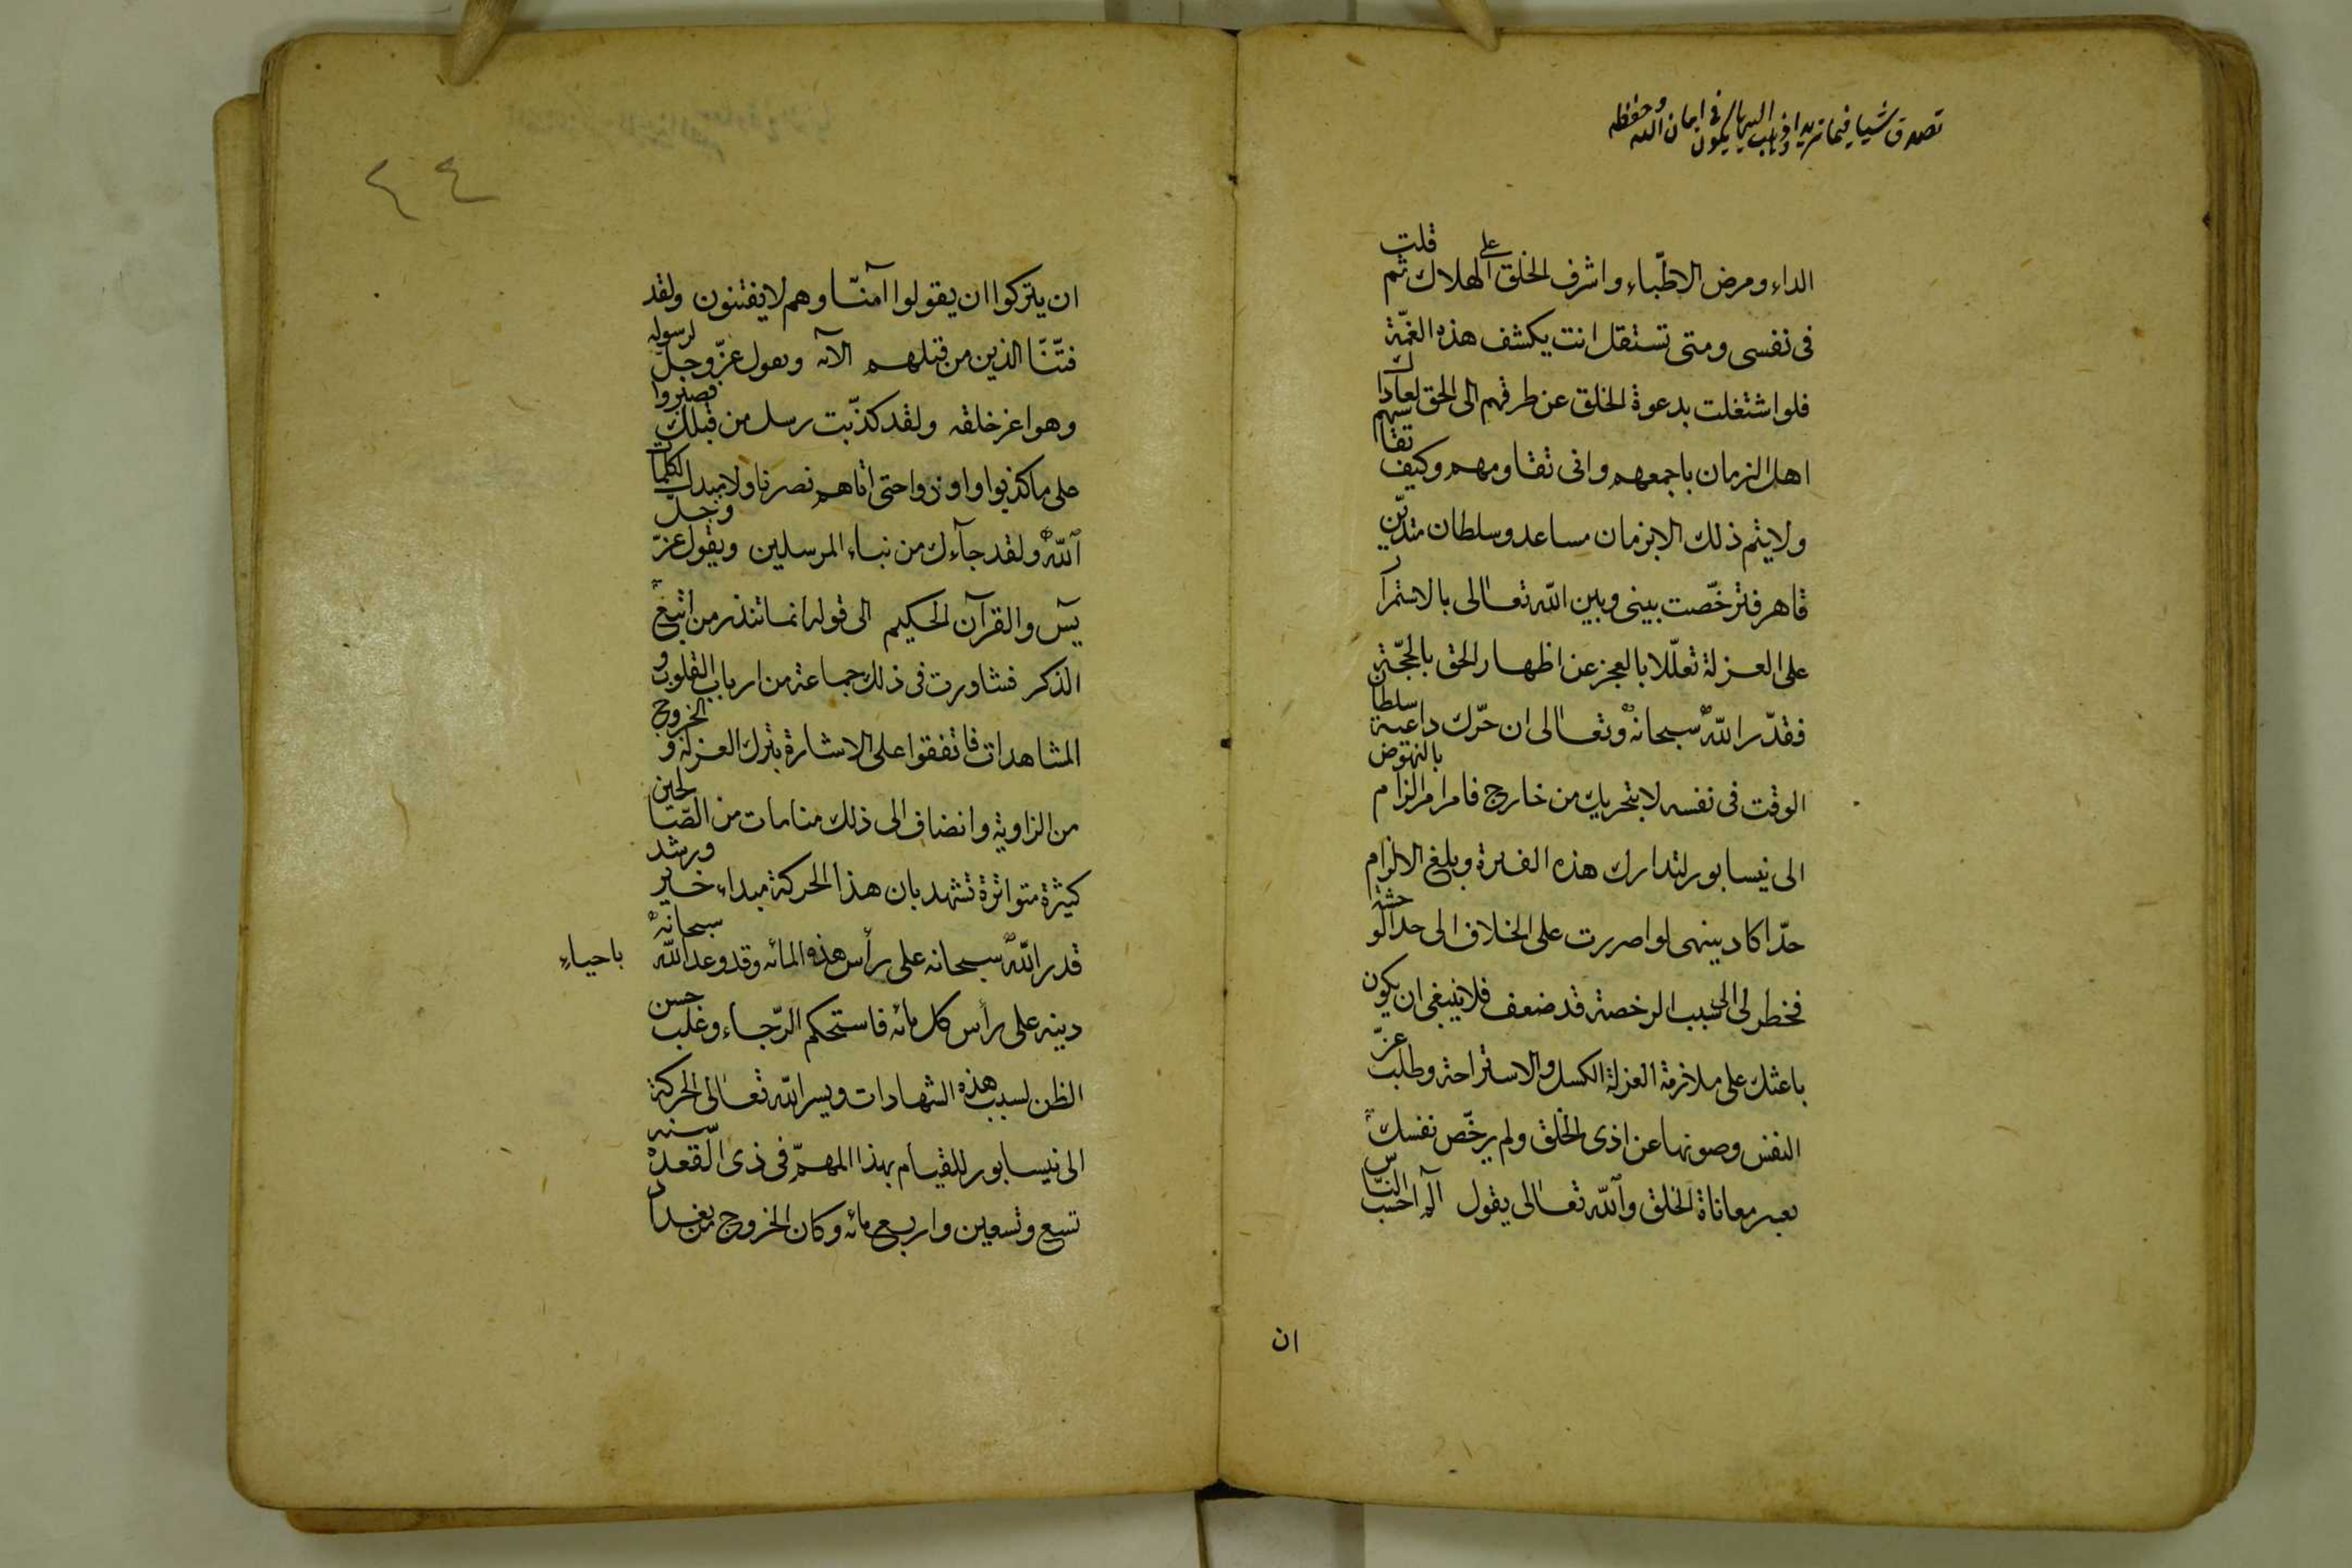 تصدق شيا فيما تريد اذهاب اليها يكون في امان الله وحفظه
الداء ومرض الاطبّاء واشرف الخلق على الهلاك ثم قلت
فى نفسى ومتى تستقل انت يكشف هذه الغمّة
فلو اشتغلت بدعوة الخلق عن طرقهم الى الحق لعاداك
اهل الزمان باجمعهم وانى تقاومهم وكيف تقاسيهم
ولا يتم ذلك الا بزمان مساعد وسلطان متديّن
قاهر فترخّصت بينى وبين اللّه تعالى بالاستمرار
على العزلة تعلّلا بالعجز عن اظهار الحق بالحجّة
فقدّر اللّه سبحانه وتعالى ان حرّك داعية سلطان
الوقت فى نفسه لا بتحريك من خارج فامر امر الزام بالنهوض
الى نيسابور لتدارك هذه الفترة وبلغ الالزام
حدّا كاد ينهى لو اصررت على الخلاف الى حد الوحشة
فخطر لى الى سبب الرخصة قد ضعف فلا ينبغى ان يكون
باعثك على ملازمة العزلة الكسل والاستراحة وطلب عزّ
النفس وصونها عن اذى الخلق ولم يرخّص نفسك
بعسر معاناة الخلق واللّه تعالى يقول آلم احسب النّاس
ان
٤٤
ان يتركوا ان يقولوا آمنّا وهم لا يفتنون ولقد
فتنّا الذين من قبلهم الآيه ويقول عزّ وجلّ لرسوله
وهو اعز خلقه ولقد كذّبت رسل من قبلك فصبروا
على ما كذبوا واوذوا حتى اتاهم نصرنا ولا مبدل لكلمات
اللّه ولقد جآءك من نباء المرسلين ويقول عزّ وجلّ
يس والقرآن الحكيم الى قوله انما تنذر من اتبع
الذكر فشاورت فى ذلك جماعة من ارباب القلوب و
المشاهدات فاتفقوا على الاشارة بترك العزلة والخروج
من الزاوية وانضاف الى ذلك منامات من الصّالحين
كثيرة متواترة تشهد بان هذا الحركة مبداء خير ورشد
قدر اللّه سبحانه على رأس هذه المائه وقد وعد اللّه سبحانه باحياء
دينه على رأس كل مائه فاستحكم الرّجاء وغلب حسن
الظن لسبب هذه الشهادات ويسر اللّه تعالى الحركة
الى نيسابور للقيام بهذا المهمّ فى ذى القعده سنه
تسع وتسعين واربع مائه وكان الخروج من بغداد